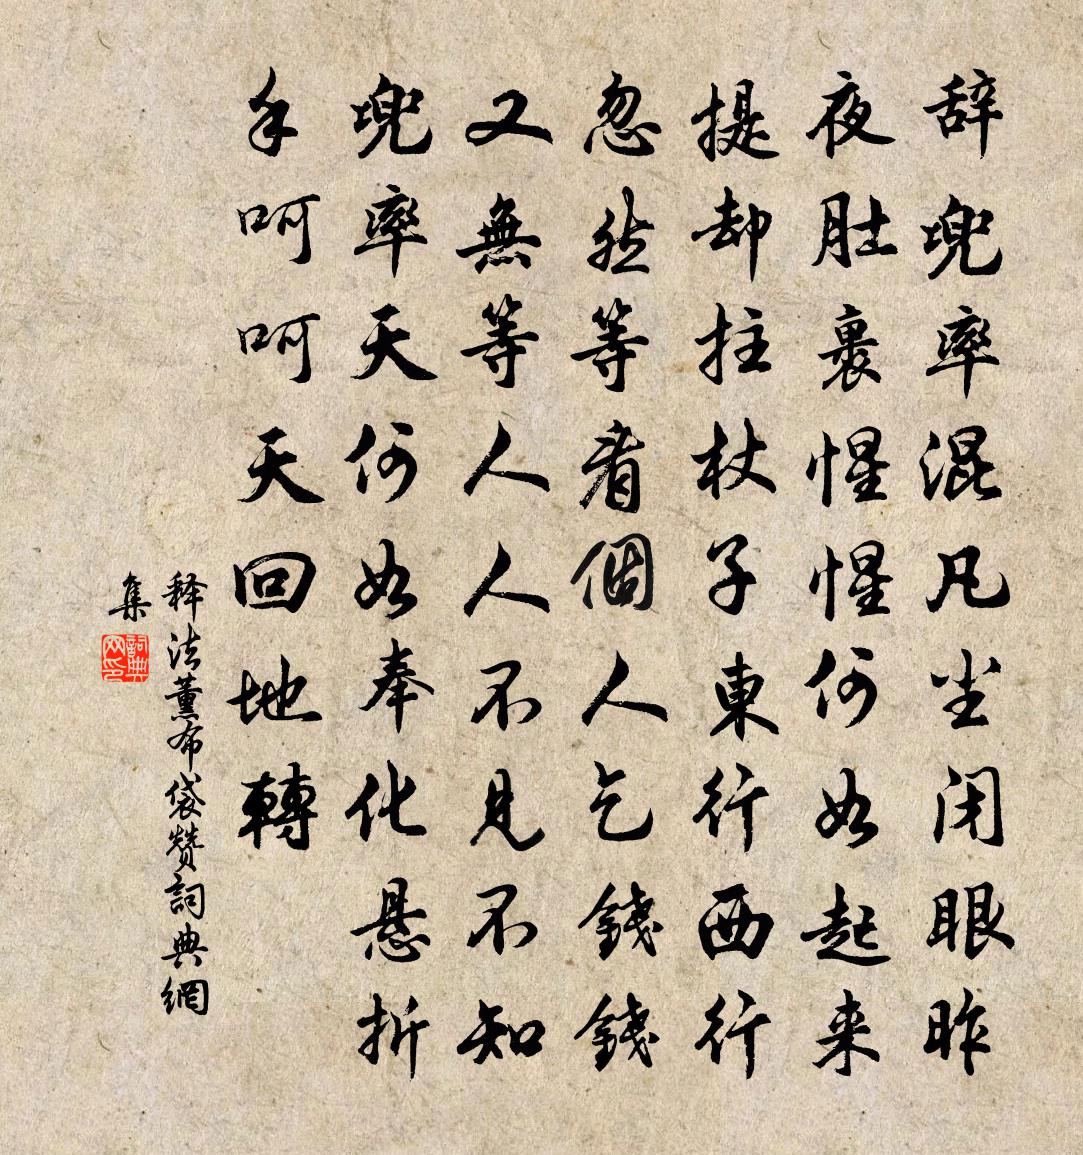 辞兜率混凡尘闭眼昨
夜肚裹惺惺何如起来
提却拄杖子東行西行
忽然等着個人乞錢錢
又無等人人不見不知
兜率天何如奉化悬折
手呵呵天回地轉
释法薰布袋赞詞典網
集
詞典网印